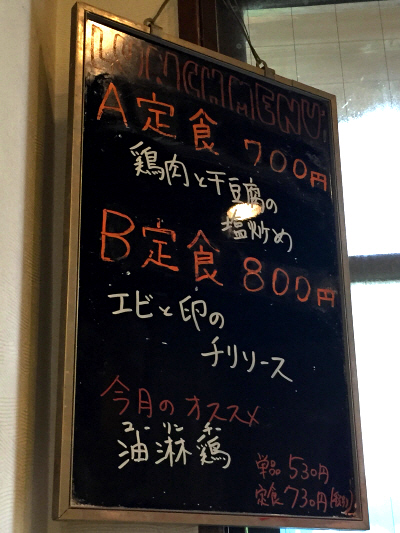 LUNCH MENU
A定食 700円
鶏肉と干豆腐の
塩炒め
B定食 800円
エビと卵の
チリソース
今月のオススメ
ユーリンチー
油淋鶏
単品 530円
定食 730円